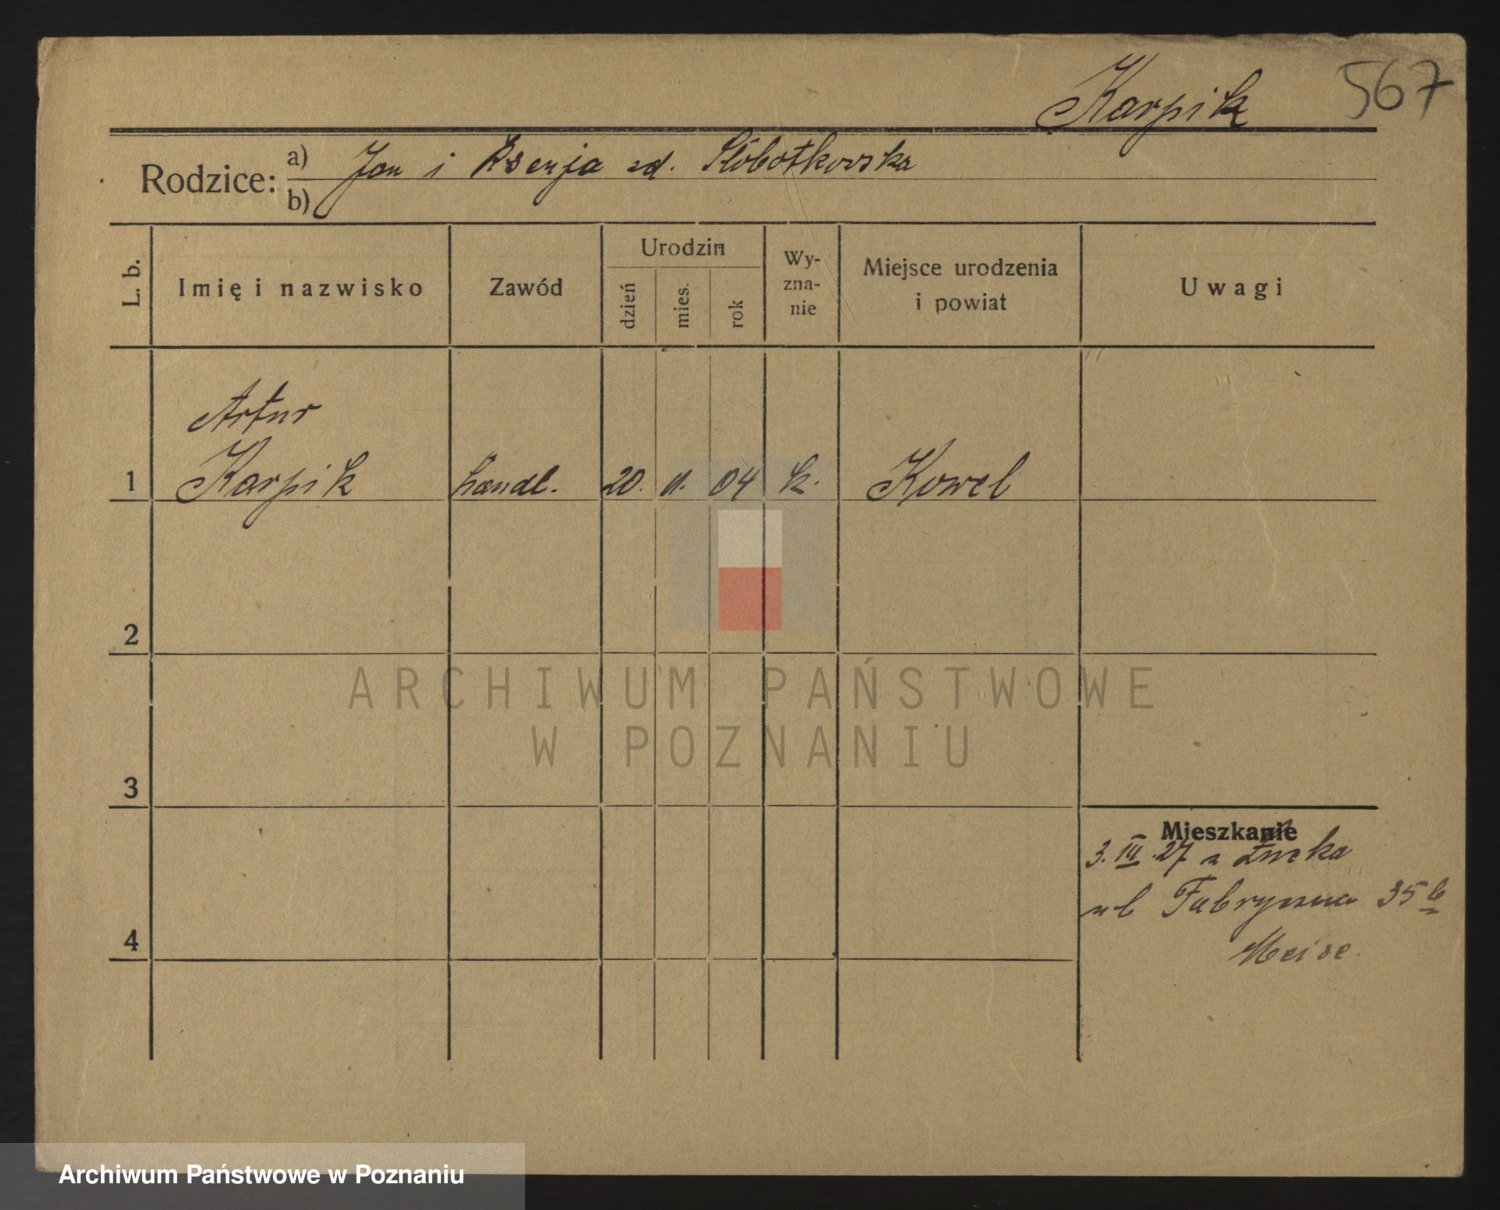 Karpik
567
Rodzice: a) Jan i Ksenja zd. Słobotkowska
b)
L. b.
Imię i nazwisko
Zawód
Urodzin
dzień
mies.
rok
Wy-
zna-
nie
Miejsce urodzenia
i powiat
Uwagi
Artur
1 Karpik handl. 20. 11. 04 k. Kowel
2
ARCHIWUM PAŃSTWOWE
W POZNANIU
3
Mieszkanie
3. III. 27 z Łucka
ul Fabryczna 35 b
4
Archiwum Państwowe w Poznaniu